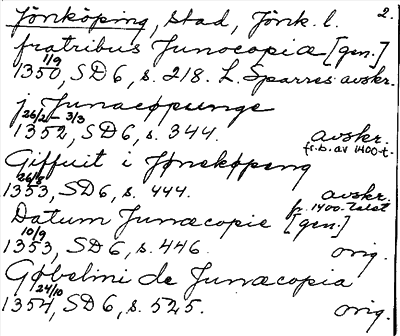 Jönköping, stad, Jönk. l. 2.
fratribus Junocopiæ [gen.]
1350 1/9, SD 6, s. 218. L. Sparres avskr.
j Junacøpunge
1352 26/2 – 3/3, SD 6, s. 344. avskr. fr. b. av 1400-t.
Giffuit i Jøneköpung
1353 26/5, SD 6, s. 444. avskr. fr. 1400-talet
Datum Junæcopie [gen.]
1353 10/9, SD 6, s. 446. orig.
Gobelini de Junacopia
1354 24/10, SD 6, s. 525. orig.